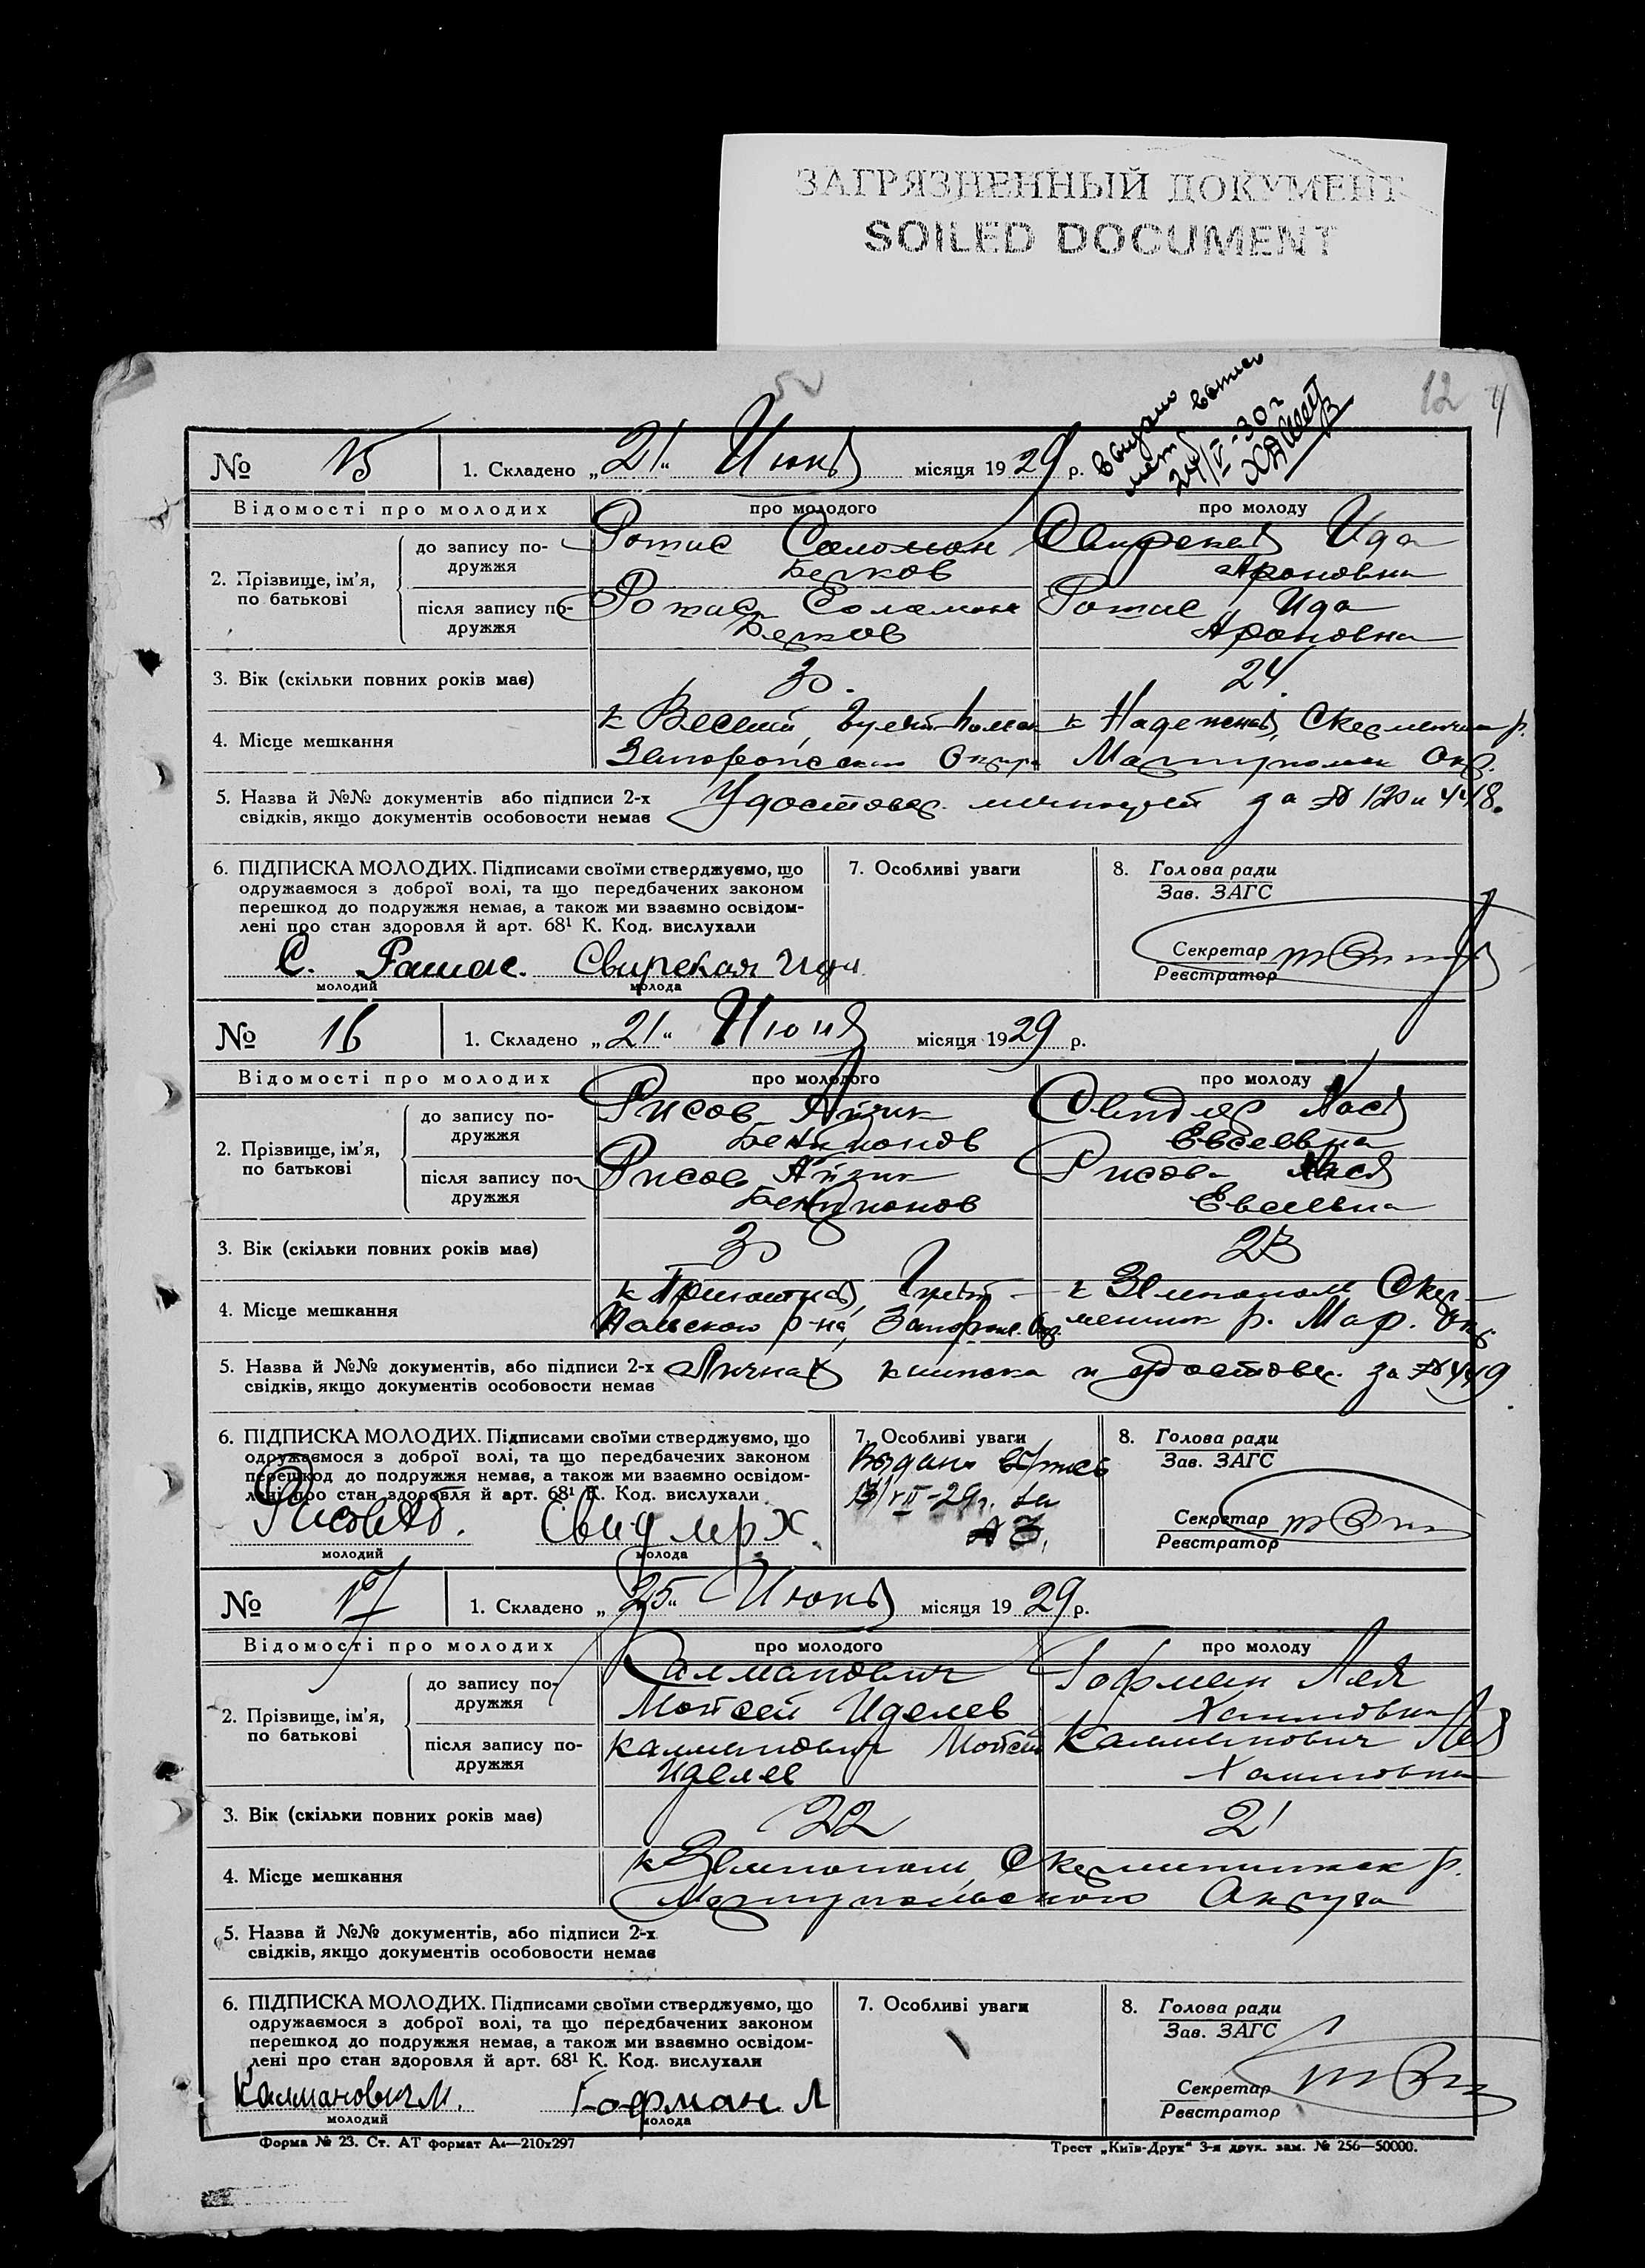 ЗАГРЯЗНЕННЫЙ ДОКУМЕНТ
SOILED DOCUMENT
12
№ 15 1. Складено „21“ Июня місяця 1929 р.
24/IV-30 г
Відомості про молодих про молодого про молоду
2. Прізвище, ім’я, по батькові
до запису подружжя Ротис Соломон Берков Свирская Ида Ароновна
після запису подружжя Ротис Соломон Берков Ротис Ида Ароновна
3. Вік (скільки повних років має) 30. 24.
4. Місце мешкання к Веселий, к Надежная,
Запорожского Округа Мариупольск Окр.
5. Назва й №№ документів або підписи 2-х Удостовер. за № 120 и 448.
свідків, якщо документів особовости немає
6. ПІДПИСКА МОЛОДИХ. Підписами своїми стверджуємо, що
одружаємося з доброї волі, та що передбачених законом
перешкод до подружжя немає, а також ми взаємно освідом-
лені про стан здоровля й арт. 68¹ К. Код. вислухали
7. Особливі уваги
8. Голова ради
Зав. ЗАГС
Секретар
Реєстратор
С. Свирская Ида
молодий молода
№ 16 1. Складено „21“ Июня місяця 1929 р.
Відомості про молодих про молодого про молоду
2. Прізвище, ім’я, по батькові
до запису подружжя Рисов Айзик Бенционов Свидлер Хася Евсеевна
після запису подружжя Рисов Айзик Бенционов Рисова Хася Евсеевна
3. Вік (скільки повних років має) 30 23
4. Місце мешкання к к Зелиополь
р-на, Запорож. Окр. р. Мар. Окр.
5. Назва й №№ документів, або підписи 2-х Личная книжка и удостовер. за № 449
свідків, якщо документів особовости немає
6. ПІДПИСКА МОЛОДИХ. Підписами своїми стверджуємо, що
одружаємося з доброї волі, та що передбачених законом
перешкод до подружжя немає, а також ми взаємно освідом-
лені про стан здоровля й арт. 68¹ К. Код. вислухали
7. Особливі уваги
Выдана выпись
VII-29г. за
№ 3.
8. Голова ради
Зав. ЗАГС
Секретар
Реєстратор
Свидлер Х.
молодий молода
№ 17 1. Складено „25“ Июня місяця 1929 р.
Відомості про молодих про молодого про молоду
2. Прізвище, ім’я, по батькові
до запису подружжя Калманович Мойсей Иделев Гофман Лея Хаимовна
після запису подружжя Калманович Мойсей Иделев Калманович Лея Хаимовна
3. Вік (скільки повних років має) 22 21
4. Місце мешкання к Зелиополь, р.
Мариупольского Округа
5. Назва й №№ документів, або підписи 2-х
свідків, якщо документів особовости немає
6. ПІДПИСКА МОЛОДИХ. Підписами своїми стверджуємо, що
одружаємося з доброї волі, та що передбачених законом
перешкод до подружжя немає, а також ми взаємно освідом-
лені про стан здоровля й арт. 68¹ К. Код. вислухали
7. Особливі уваги
8. Голова ради
Зав. ЗАГС
Секретар
Реєстратор
Калманович М. Гофман Л
молодий молода
Форма № 23. Ст. АТ формат А₄—210х297
Трест „Київ-Друк“ 3-я друк. зам. № 256—50000.